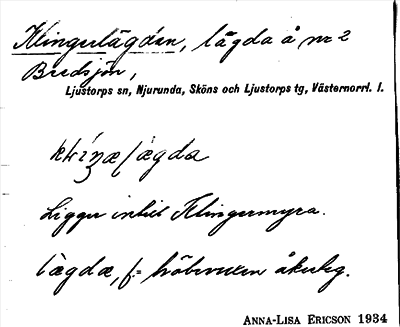 Klingerlägdan, lägda å nr 2
Bredsjön,
Ljustorps sn, Njurunda, Sköns och Ljustorps tg, Västernorrl. l.
Ligger intill Klingermyra.
lägda, f. = höbevuxen åkerteg.
ANNA-LISA ERICSON 1934